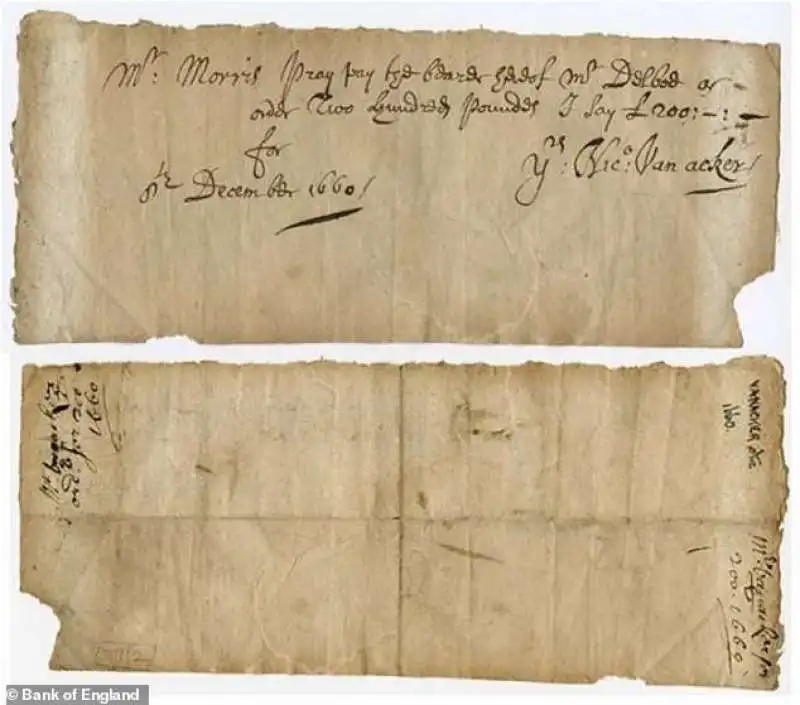 Mr: Morris Pray pay the bearer hereof Mr Delboe or
order Two hundred Pounds I say £200:-:-
for
Yrs: Nic: Vanacker
December 1660
for 200
1660
VANACKER
1660.
200. 1660
© Bank of England